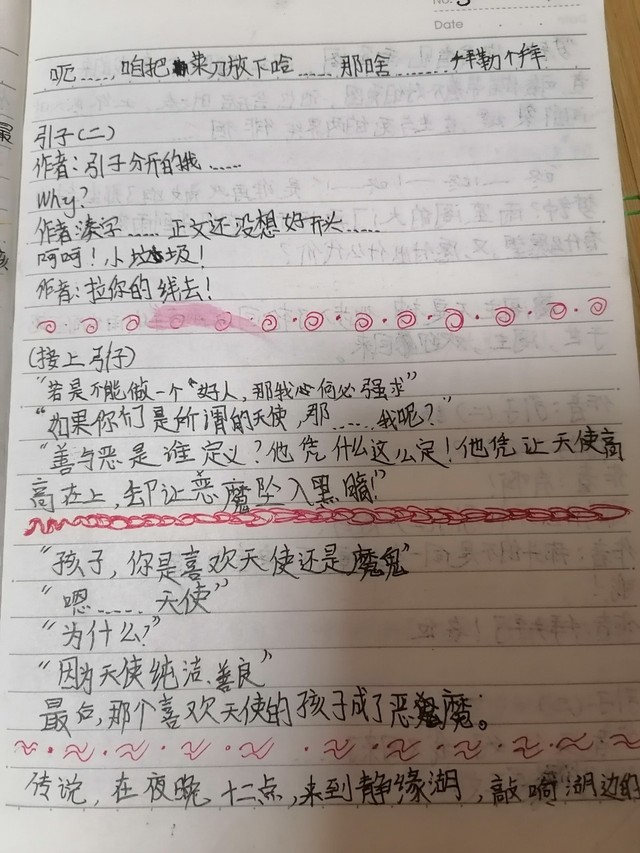 No.
Date
呃……,咱把菜刀放下哈……那啥……
引子(二)
作者:引子分开的哦……
Why?
作者:凑字……正文还没想好开头……
呵呵!小垃圾!
作者:拉你的线去!
(接上引子)
“若是不能做一个“好人,那我心何必强求”
“如果你们是所谓的天使,那……我呢?”
“善与恶是谁定义?他凭什么这么定!他凭让天使高
高在上,却让恶魔坠入黑暗!”
“孩子,你是喜欢天使还是魔鬼”
“嗯……天使”
“为什么?”
“因为天使纯洁、善良”
最后,那个喜欢天使的孩子成了恶魔。
传说,在夜晚十二点,来到静缘湖,敲响湖边的